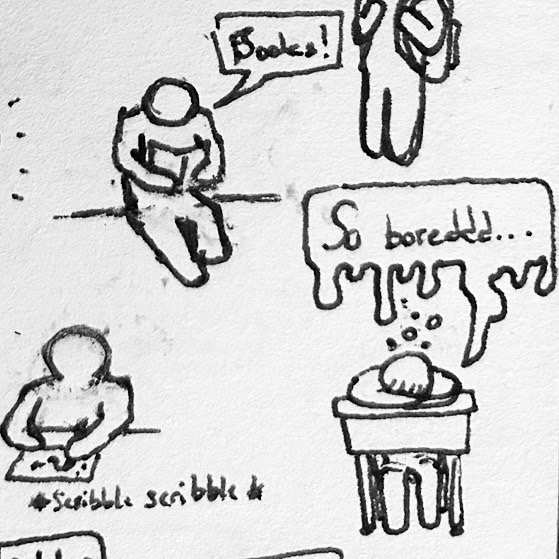 Books!
So boreddd...
*Scribble scribble*